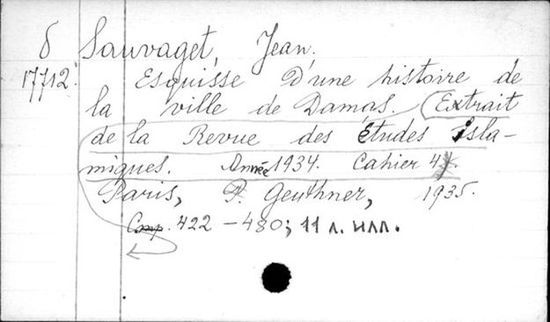 δ Sauvaget, Jean.
17712. Esquisse d'une histoire de
la ville de Damas. (Extrait
de la Revue des études isla-
miques. Année 1934. Cahier 4)
Paris, P. Geuthner, 1935.
Стр. 422-480; 11 л. илл.